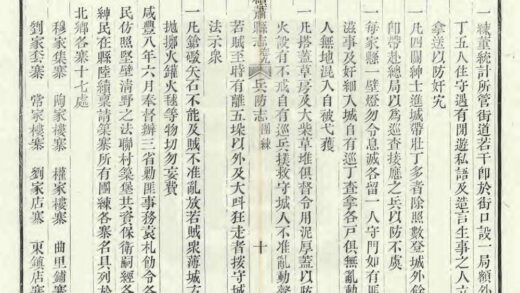 一練董統計所管街道若干卽於街口設一局額外
丁五人住守遇有閒遊私語及造言生事之人立
拿送以防奸宄
一凡四關紳士進城帶壯丁多者除照數登城外餘
卽帶赴總局以為巡查接應之兵以防不虞
一每家縣一壁燈勿令息滅各留一人守門如有匪
滋事及奸細入城自有巡丁查拿各戶俱無亂動
人無地混入自被弋獲
一凡搭蓋草房及大柴草堆俱督令用泥厚蓋以防
火設有不戒自有巡兵撲救守城人不准亂動
蕭縣志 兵防志 團練 十
若賊至時有離五垛以外及大呌狂走者按守城
法示衆
一凡鎗礮矢石不能及賊不准亂放若賊衆薄城方
拋擲火鑵火毬等物切勿妄費
咸豐八年六月奉督辦三省勦匪事務袁札飭令各
民仿照堅壁清野之法聯村築堡共資保衛嗣經各
紳民在縣陸續稟請築寨所有團練各寨名具列於
北鄉各寨十七處
穆家集寨 陶家樓寨 權家樓寨 曲里鋪寨
劉家套寨 常家樓寨 劉家店寨 東鎮店寨